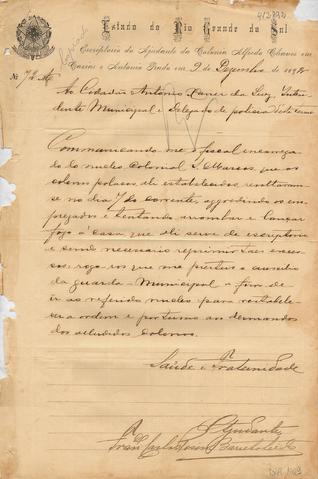 Estado do Rio Grande do Sul
Escriptorio do Ajudante da Colonia Alfredo Chaves em
Caxias e Antonio Prado em 9 de Dezembro de 189
Nº
Ao Cidadão Antonio Xavier da Luz, Inten
dente Municipal e Delegado de policia deste termo
Communicando-me o fiscal encarrega
do do nucleo Colonial S. Marcos, que os
colonos polacos ali estabelecidos revoltaram-
se no dia 7 do corrente, aggredindo os em
pregados e tentando arrombar e lançar
fogo á casa que ali serve de escriptorio
e sendo necessario reprimir taes exces
sos, rogo-vos que me presteis o auxilio
da guarda Municipal a fim de
ir ao referido nucleo para restabele-
cer a ordem e por termo aos desmandos
dos alludidos colonos.
Saúde e Fraternidade
O Ajudante